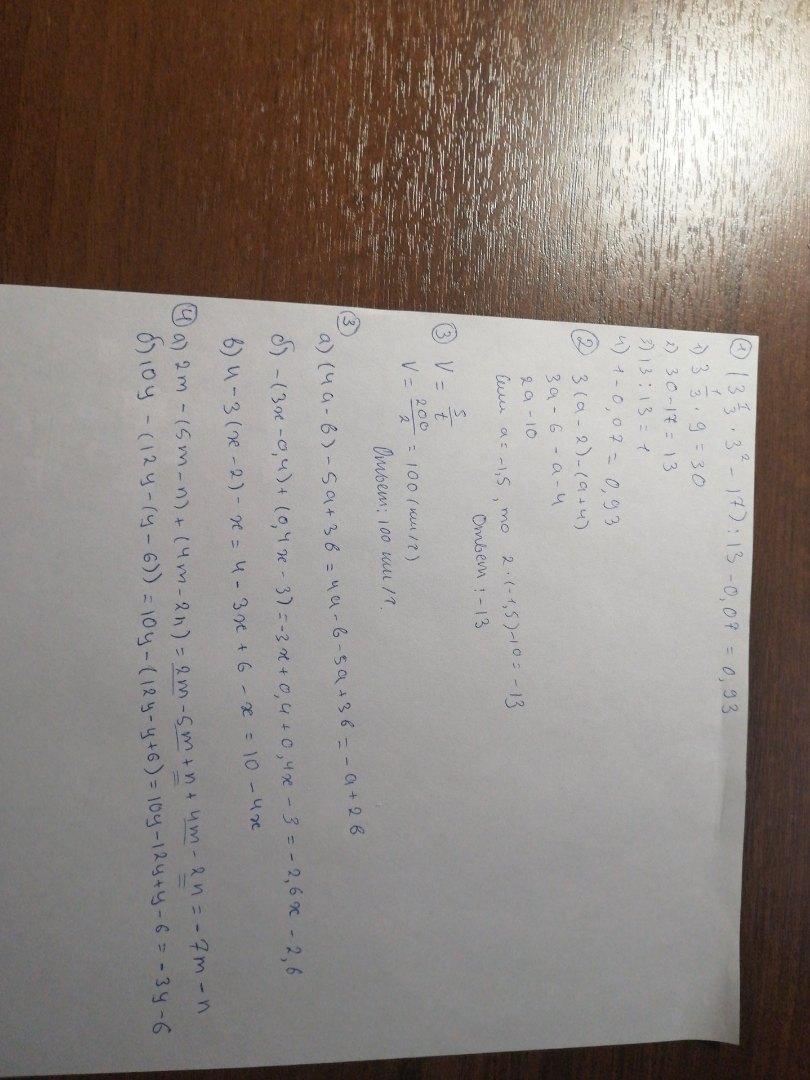 ① (3 1/3 · 3² - 17) : 13 - 0,07 = 0,93
1) 3 1/3 · 9 = 30
2) 30 - 17 = 13
3) 13 : 13 = 1
4) 1 - 0,07 = 0,93
② 3(a - 2) - (a + 4)
3a - 6 - a - 4
2a - 10
Если a = -1,5, то 2 · (-1,5) - 10 = -13
Ответ: -13
③ V = S/t
V = 200/2 = 100 (км/ч)
Ответ: 100 км/ч.
③
а) (4a - b) - 5a + 3b = 4a - b - 5a + 3b = -a + 2b
б) -(3x - 0,4) + (0,4x - 3) = -3x + 0,4 + 0,4x - 3 = -2,6x - 2,6
в) 4 - 3(x - 2) - x = 4 - 3x + 6 - x = 10 - 4x
④ а) 2m - (5m - n) + (4m - 2n) = 2m - 5m + n + 4m - 2n = -7m - n
б) 10y - (12y - (y - 6)) = 10y - (12y - y + 6) = 10y - 12y + y - 6 = -3y - 6